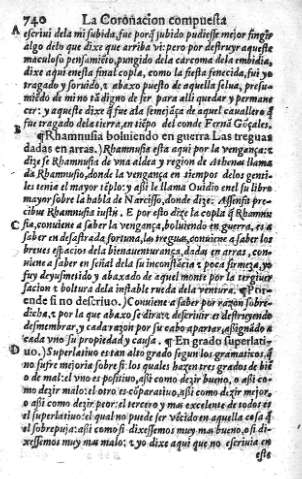 740 La Coronacion compuesta
A escriui dela mi subida, fue porq̃ jubido pudiesse mejor fingir
algo delo que dixe que arriba vi: pero por destruyr aqueste
maculoso pensamiẽto, pungido dela carcoma dela embidia,
dixe aqui enesta final copla, como la fiesta fenecida, fui yo
tragado y soruido, ⁊ abaxo puesto de aquella selua, presu-
miẽdo de mi no tã digno de ser para alli quedar y permane
cer: y aqueste dixe q̃ fue ala semejãça de aquel cauallero q̃
fue tragado dela tierra, en tiẽpo del conde Fernã Gõçales.
B ¶Rhamnusia boluiendo en guerra Las treguas
dadas en arras.) Rhamnusia esta aqui por la vengança: ⁊
dize se Rhamnusia de vna aldea y region de Athenas llama
da Rhamnusio, donde la vengança en tiempos delos genti-
les tenia el mayor tẽplo: y assi le llama Ouidio enel su libro
mayor sobre la habla de Narcisso, donde dize. Assensit pre-
cibus Rhamnusia iustis. E por esto dize la copla q̃ Rhamnu
C sia, conuiene a saber la vengança, boluiendo en guerra, es a
saber en desastrada fortuna, las treguas, conuiene a saber los
breues espacios dela bienauenturança, dadas en arras, con-
uiene a saber en señal dela su inconstãcia ⁊ poca firmeza, yo
fuy deyusmetido y abaxado de aquel monte por la tergiuer
sacion ⁊ boltura dela instable rueda dela ventura. ¶Por-
ende si no descriuo.) Conuiene a saber por razon sobre-
dicha, ⁊ por la que abaxo se dira: ⁊ descriuir es destruyendo
desmembrar, y cada razon por su cabo apartar, assignãdo a
cada vno su propiedad y causa. ¶En grado superlati-
D uo.) Superlatiuo es tan alto grado segun los gramaticos, q̃
no sufre mejoria sobre si: los quales hazen tres grados de biẽ
o de mal: el vno es positiuo, assi como dezir bueno, o assi co-
mo dezir malo: el otro es cõparatiuo, assi como dezir mejor,
o assi como dezir peor: el tercero y mas excelente de todos es
el superlatiuo: el qual no puede ser vẽcido en aquella cosa q̃
el sobrepuja: assi como si dixessemos muy mas bueno, o si di-
xessemos muy mas malo: ⁊ yo dixe aqui que no escriuia en
este